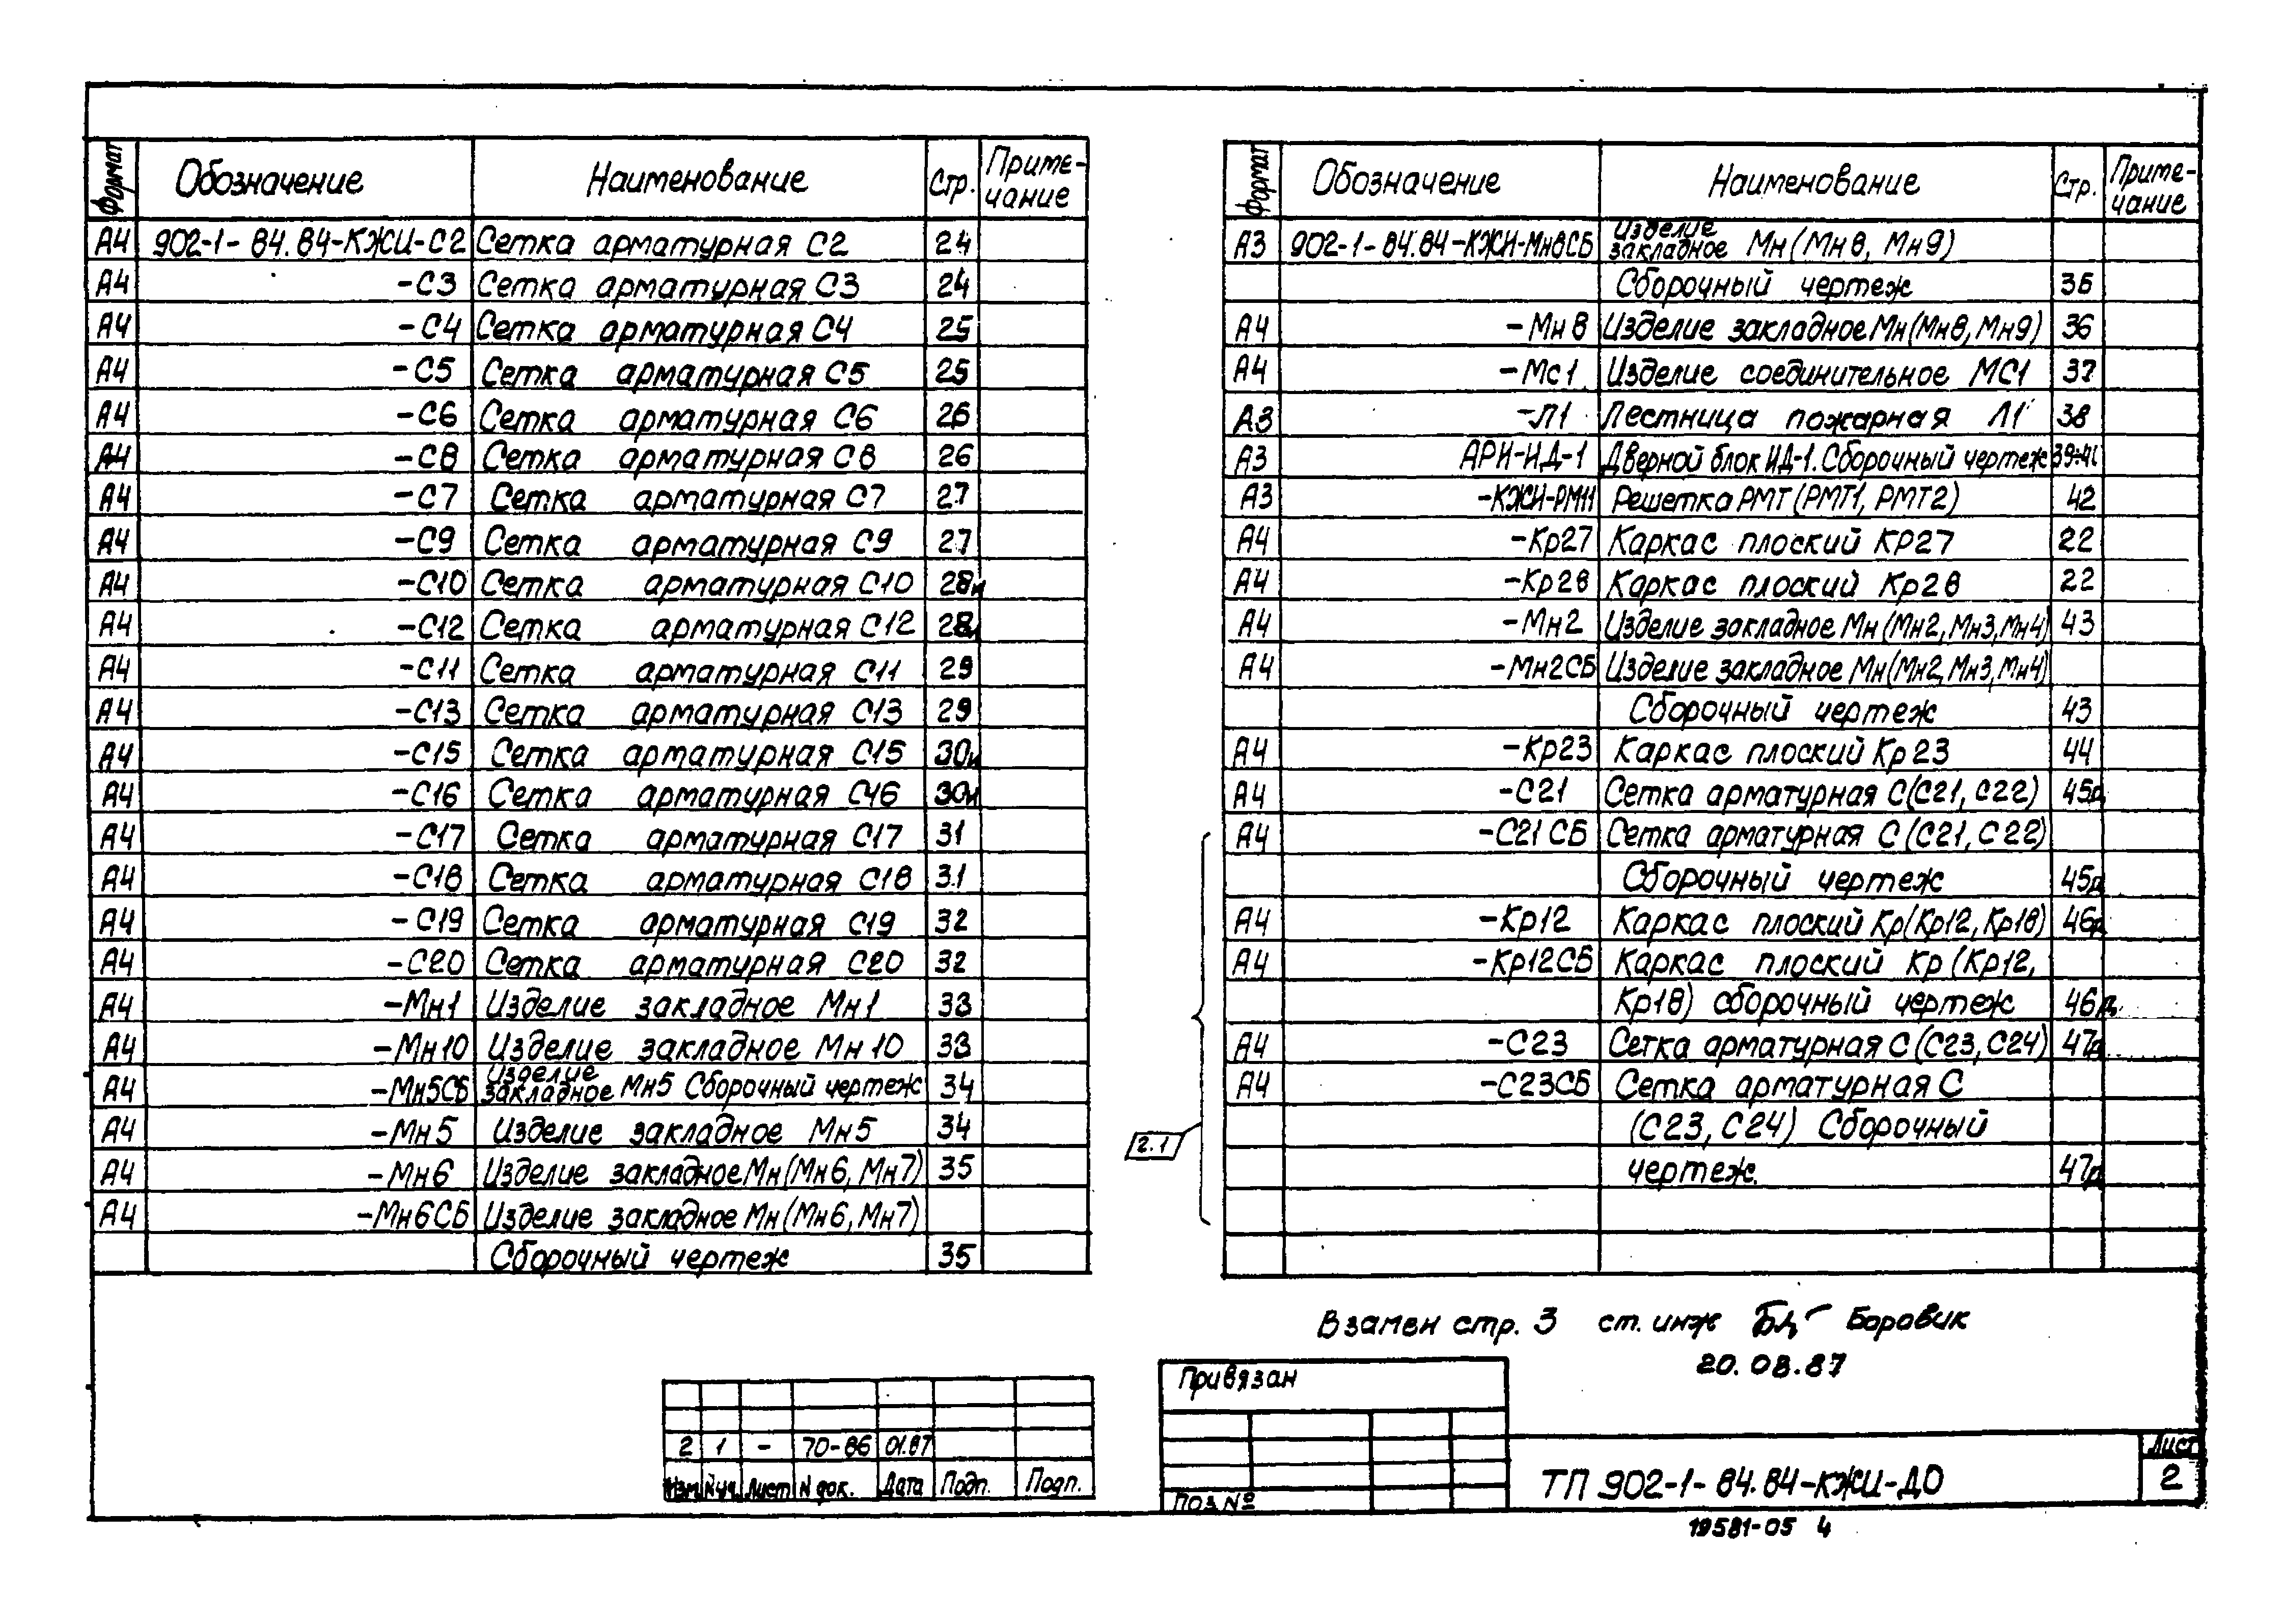 Формат Обозначение Наименование Стр. Приме-
чание
А4 902-1-84.84-КЖИ-С2 Сетка арматурная С2 24
А4 -С3 Сетка арматурная С3 24
А4 -С4 Сетка арматурная С4 25
А4 -С5 Сетка арматурная С5 25
А4 -С6 Сетка арматурная С6 26
А4 -С8 Сетка арматурная С8 26
А4 -С7 Сетка арматурная С7 27
А4 -С9 Сетка арматурная С9 27
А4 -С10 Сетка арматурная С10 28и
А4 -С12 Сетка арматурная С12 28и
А4 -С11 Сетка арматурная С11 29
А4 -С13 Сетка арматурная С13 29
А4 -С15 Сетка арматурная С15 30и
А4 -С16 Сетка арматурная С16 30и
А4 -С17 Сетка арматурная С17 31
А4 -С18 Сетка арматурная С18 31
А4 -С19 Сетка арматурная С19 32
А4 -С20 Сетка арматурная С20 32
А4 -Мн1 Изделие закладное Мн1 33
А4 -Мн10 Изделие закладное Мн10 33
А4 -Мн5СБ Изделие закладное Мн5 Сборочный чертеж 34
А4 -Мн5 Изделие закладное Мн5 34
А4 -Мн6 Изделие закладное Мн(Мн6, Мн7) 35
А4 -Мн6СБ Изделие закладное Мн(Мн6, Мн7)
Сборочный чертеж 35
Формат Обозначение Наименование Стр. Приме-
чание
А3 902-1-84.84-КЖИ-Мн8СБ Изделие закладное Мн(Мн8, Мн9)
Сборочный чертеж 36
А4 -Мн8 Изделие закладное Мн(Мн8, Мн9) 36
А4 -Мс1 Изделие соединительное МС1 37
А3 -Л1 Лестница пожарная Л1 38
А3 АРИ-ИД-1 Дверной блок ИД-1. Сборочный чертеж 39-41
А3 -КЖИ-РМ11 Решетка РМТ(РМТ1, РМТ2) 42
А4 -Кр27 Каркас плоский КР27 22
А4 -Кр28 Каркас плоский Кр28 22
А4 -Мн2 Изделие закладное Мн(Мн2, Мн3, Мн4) 43
А4 -Мн2СБ Изделие закладное Мн(Мн2, Мн3, Мн4)
Сборочный чертеж 43
А4 -Кр23 Каркас плоский Кр23 44
А4 -С21 Сетка арматурная С(С21, С22) 45д
А4 -С21СБ Сетка арматурная С(С21, С22)
Сборочный чертеж 45д
А4 -Кр12 Каркас плоский Кр(Кр12, Кр18) 46д
А4 -Кр12СБ Каркас плоский Кр(Кр12,
Кр18) сборочный чертеж 46д
А4 -С23 Сетка арматурная С(С23, С24) 47д
А4 -С23СБ Сетка арматурная С
(С23, С24) Сборочный
чертеж. 47д
2.1
Взамен стр. 3 ст. инж Боровик
20.08.87
2 1 - 70-86 01.87
Изм N уч. Лист N док. Дата Подп. Подп.
Привязан
Поз №
ТП 902-1-84.84-КЖИ-ДО
Лист
2
19581-05 4